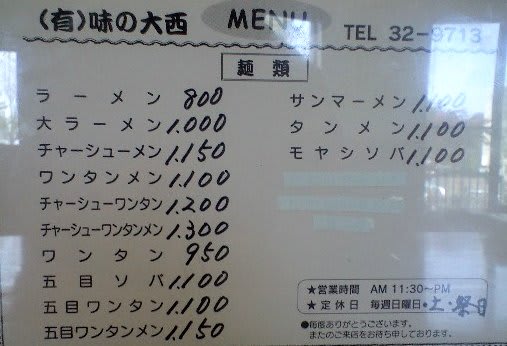 (有)味の大西 MENU TEL 32-9713
麺類
ラーメン 800
大ラーメン 1.000
チャーシューメン 1.150
ワンタンメン 1.100
チャーシューワンタン 1.200
チャーシューワンタンメン 1.300
ワンタン 950
五目ソバ 1.100
五目ワンタン 1.100
五目ワンタンメン 1.150
サンマーメン 1.100
タンメン 1.100
モヤシソバ 1.100
★営業時間 AM 11:30〜PM
★定休日 毎週日曜日・土・祭日
●毎度ありがとうございます。
またのご来店をお待ち申しております。